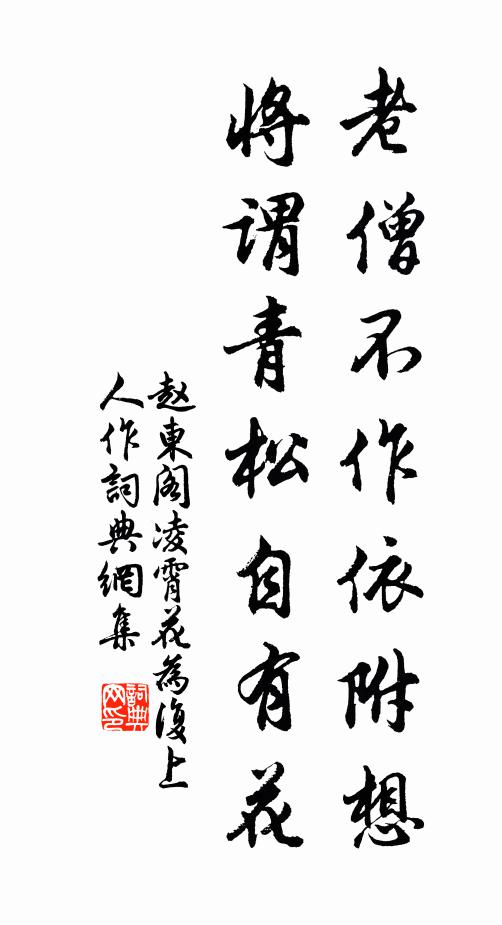 老僧不作依附想
将谓青松自有花
赵東阁凌霄花為復上
人作詞典網集
詞典
网印